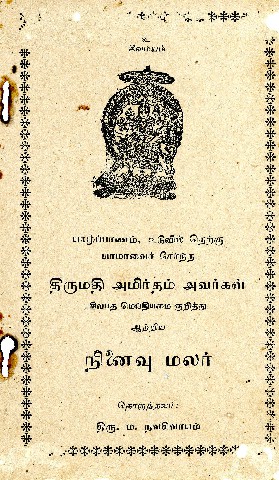 உ
சிவமயம்
யாழ்ப்பாணம், உடுவில் தெற்கு
திருமதி அமிர்தம் அவர்கள்
சிவபத மெய்தியமை குறித்து
ஆற்றிய
நினைவு மலர்
தொகுத்தவர்:
திரு. ம.